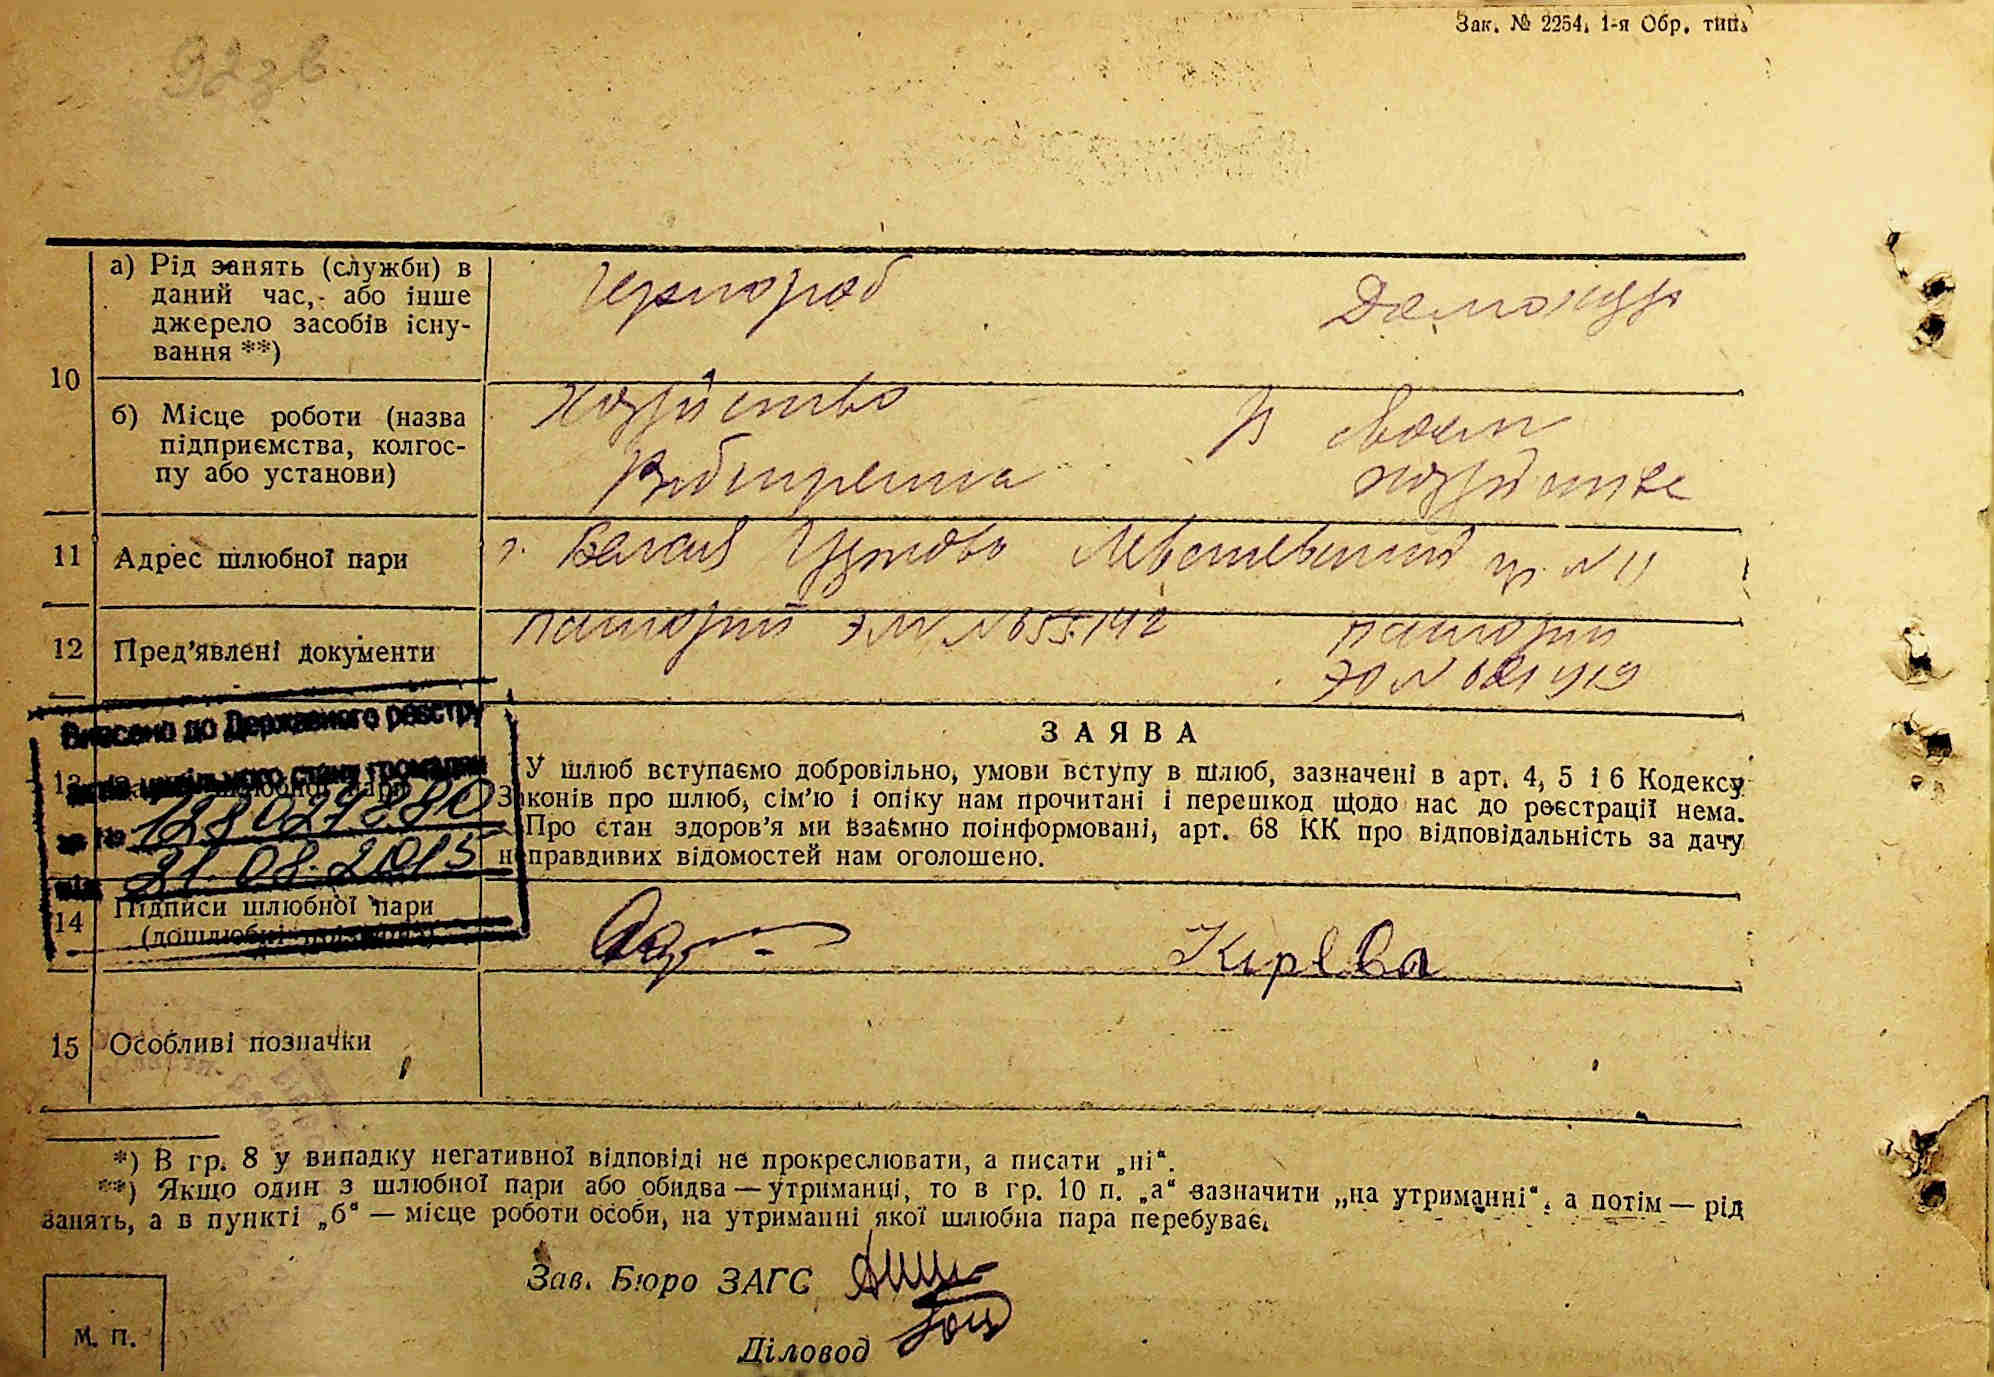 Зак. № 2254. 1-я Обр. тип.
92 зв.
10
а) Рід занять (служби) в
даний час, або інше
джерело засобів існу-
вання **)
Чернороб
Домохоз
б) Місце роботи (назва
підприємства, колгос-
пу або установи)
Хозяйство
В своем
хозяйстве
11
Адрес шлюбної пари
г.
№ 11
12
Пред'явлені документи
паспорт
паспорт
ЭЮ №
Внесено до Державного реєстру
актів цивільного стану громадян
за №
від 21.08.2015
ЗАЯВА
13
У шлюб вступаємо добровільно, умови вступу в шлюб, зазначені в арт. 4, 5 і 6 Кодексу
Законів про шлюб, сім'ю і опіку нам прочитані і перешкод щодо нас до реєстрації нема.
Про стан здоров'я ми взаємно поінформовані, арт. 68 КК про відповідальність за дачу
неправдивих відомостей нам оголошено.
14
Підписи шлюбної пари
(дошлюбні прізвища)
Кірева
15
Особливі позначки
*) В гр. 8 у випадку негативної відповіді не прокреслювати, а писати „ні“.
**) Якщо один з шлюбної пари або обидва — утриманці, то в гр. 10 п. „а“ зазначити „на утриманні“, а потім — рід
занять, а в пункті „б“ — місце роботи особи, на утриманні якої шлюбна пара перебуває.
Зав. Бюро ЗАГС
Діловод
М. П.